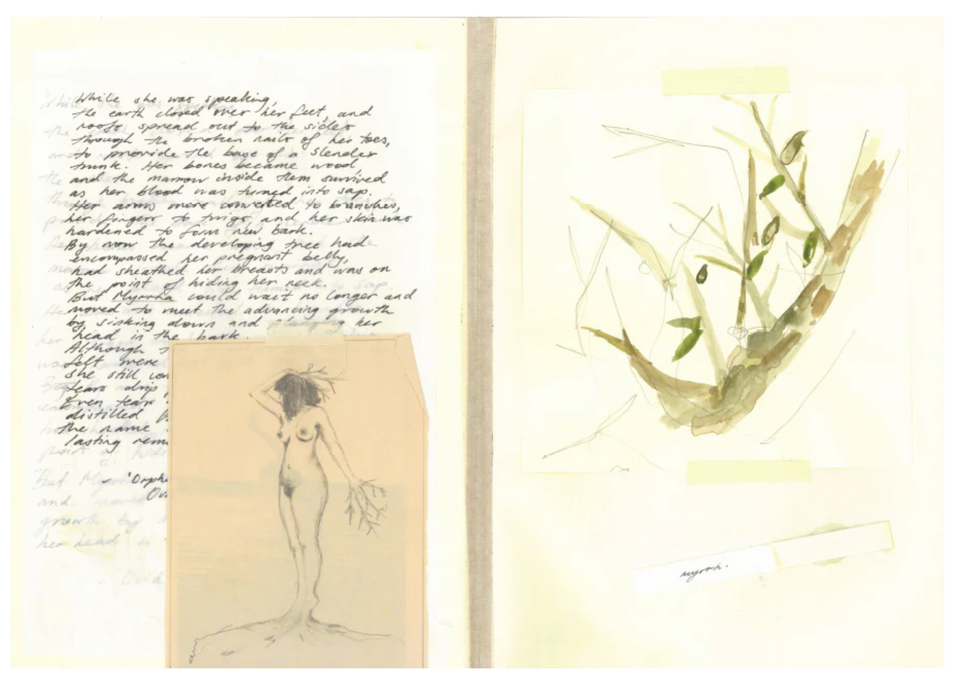 While she was speaking,
the earth closed over her feet, and
roots spread out to the sides
through the broken nails of her toes,
to provide the base of a slender
trunk. Her bones became wood
and the marrow inside them survived
as her blood was turned into sap.
Her arms were converted to branches,
her fingers to twigs, and her skin was
hardened to form new bark.
By now the developing tree had
encompassed her pregnant belly,
had sheathed her breasts and was on
the point of hiding her neck.
But Myrrha could wait no longer and
moved to meet the advancing growth
by sinking down and plunging her
head in the bark.
Although
felt were
she still
tears drip
Even tears
distilled
the name
lasting
'Orph
Ov
But
and moved
growth by
her head
myrrh.